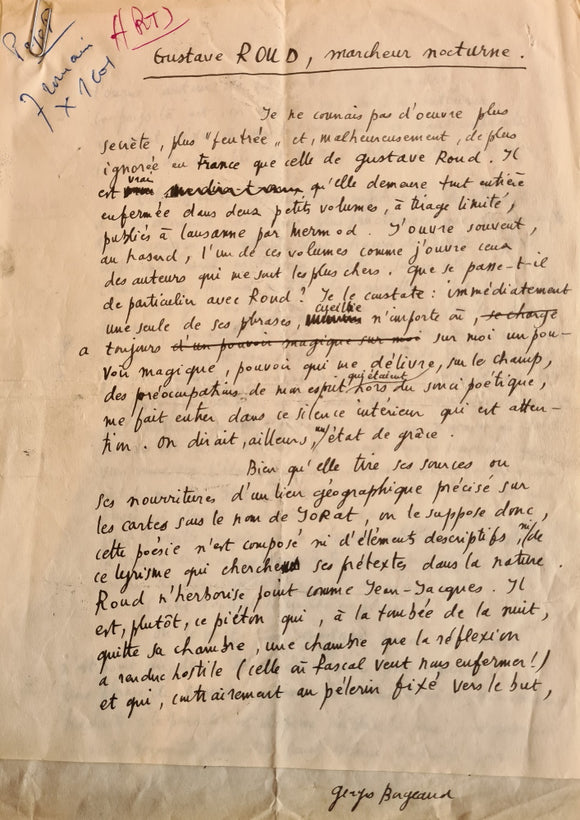 ARTS
7 romain
Gustave ROUD, marcheur nocturne.
Je ne connais pas d'oeuvre plus
secrète, plus "feutrée" et, malheureusement, de plus
ignorée en France que celle de Gustave Roud. Il
est vrai qu'elle demeure tout entière
enfermée dans deux petits volumes, à tirage limité,
publiés à Lausanne par Mermod. J'ouvre souvent,
au hasard, l'un de ces volumes comme j'ouvre ceux
des auteurs qui me sont les plus chers. Que se passe-t-il
de particulier avec Roud ? Je le constate : immédiatement
une seule de ses phrases, cueillie n'importe où, se charge
a toujours d'un pouvoir magique sur moi sur moi un pou-
voir magique, pouvoir qui me délivre, sur le champ,
des préocupations de mon esprit qui étaient hors du souci poétique,
me fait entrer dans ce silence intérieur qui est atten-
tion. On dirait, ailleurs, état de grâce.
Bien qu'elle tire ses sources ou
ses nourritures d'un lieu géographique précisé sur
les cartes sous le nom de JORAT, on le suppose donc,
cette poésie n'est composé ni d'éléments descriptifs ni de
ce lyrisme qui cherche ses prétextes dans la nature.
Roud n'herborise point comme Jean-Jacques. Il
est, plutôt, ce piéton qui, à la tombée de la nuit,
quitte sa chambre, une chambre que la réflexion
a rendue hostile (celle où Pascal veut nous enfermer!)
et qui, contrairement au pélerin fixé vers le but,
Georges Borgeaud